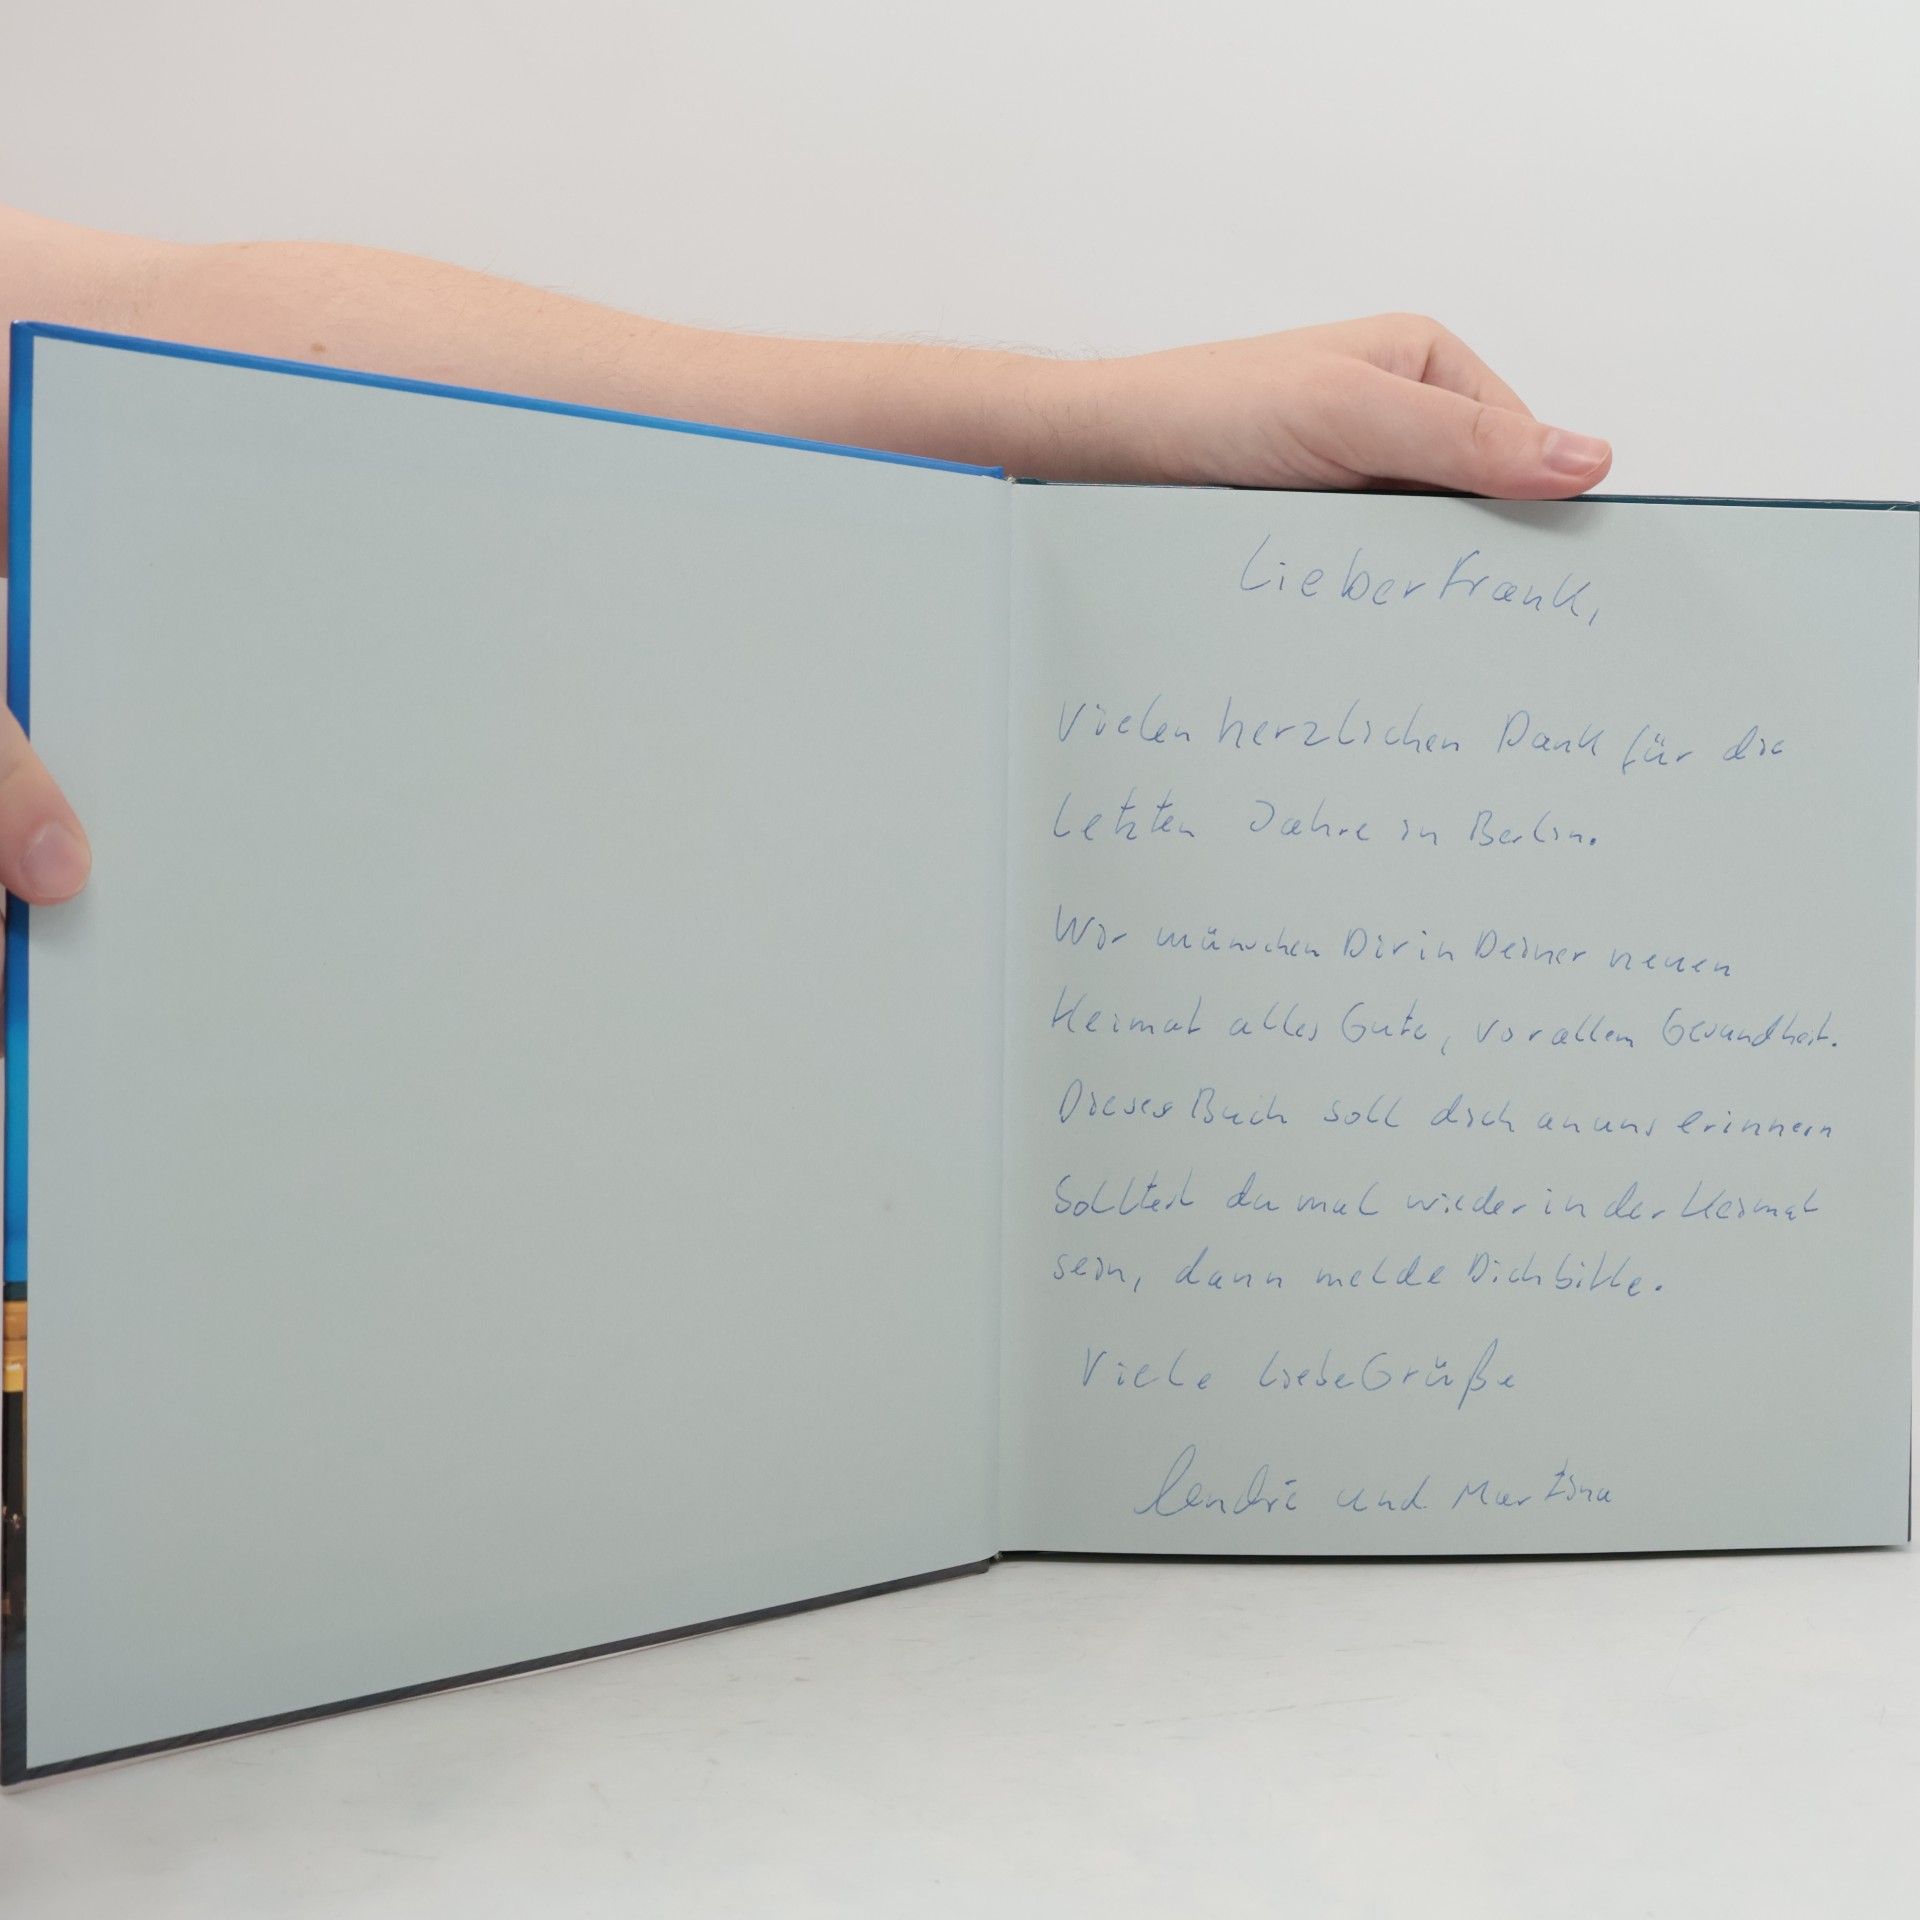 Lieber Frank,
Vielen herzlichen Dank für die
letzten Jahre in Berlin.
Wir wünschen Dir in Deiner neuen
Heimat alles Gute, vor allem Gesundheit.
Dieses Buch soll dich an uns erinnern
Solltest du mal wieder in der Heimat
sein, dann melde Dich bitte.
Viele liebe Grüße
André und Martina